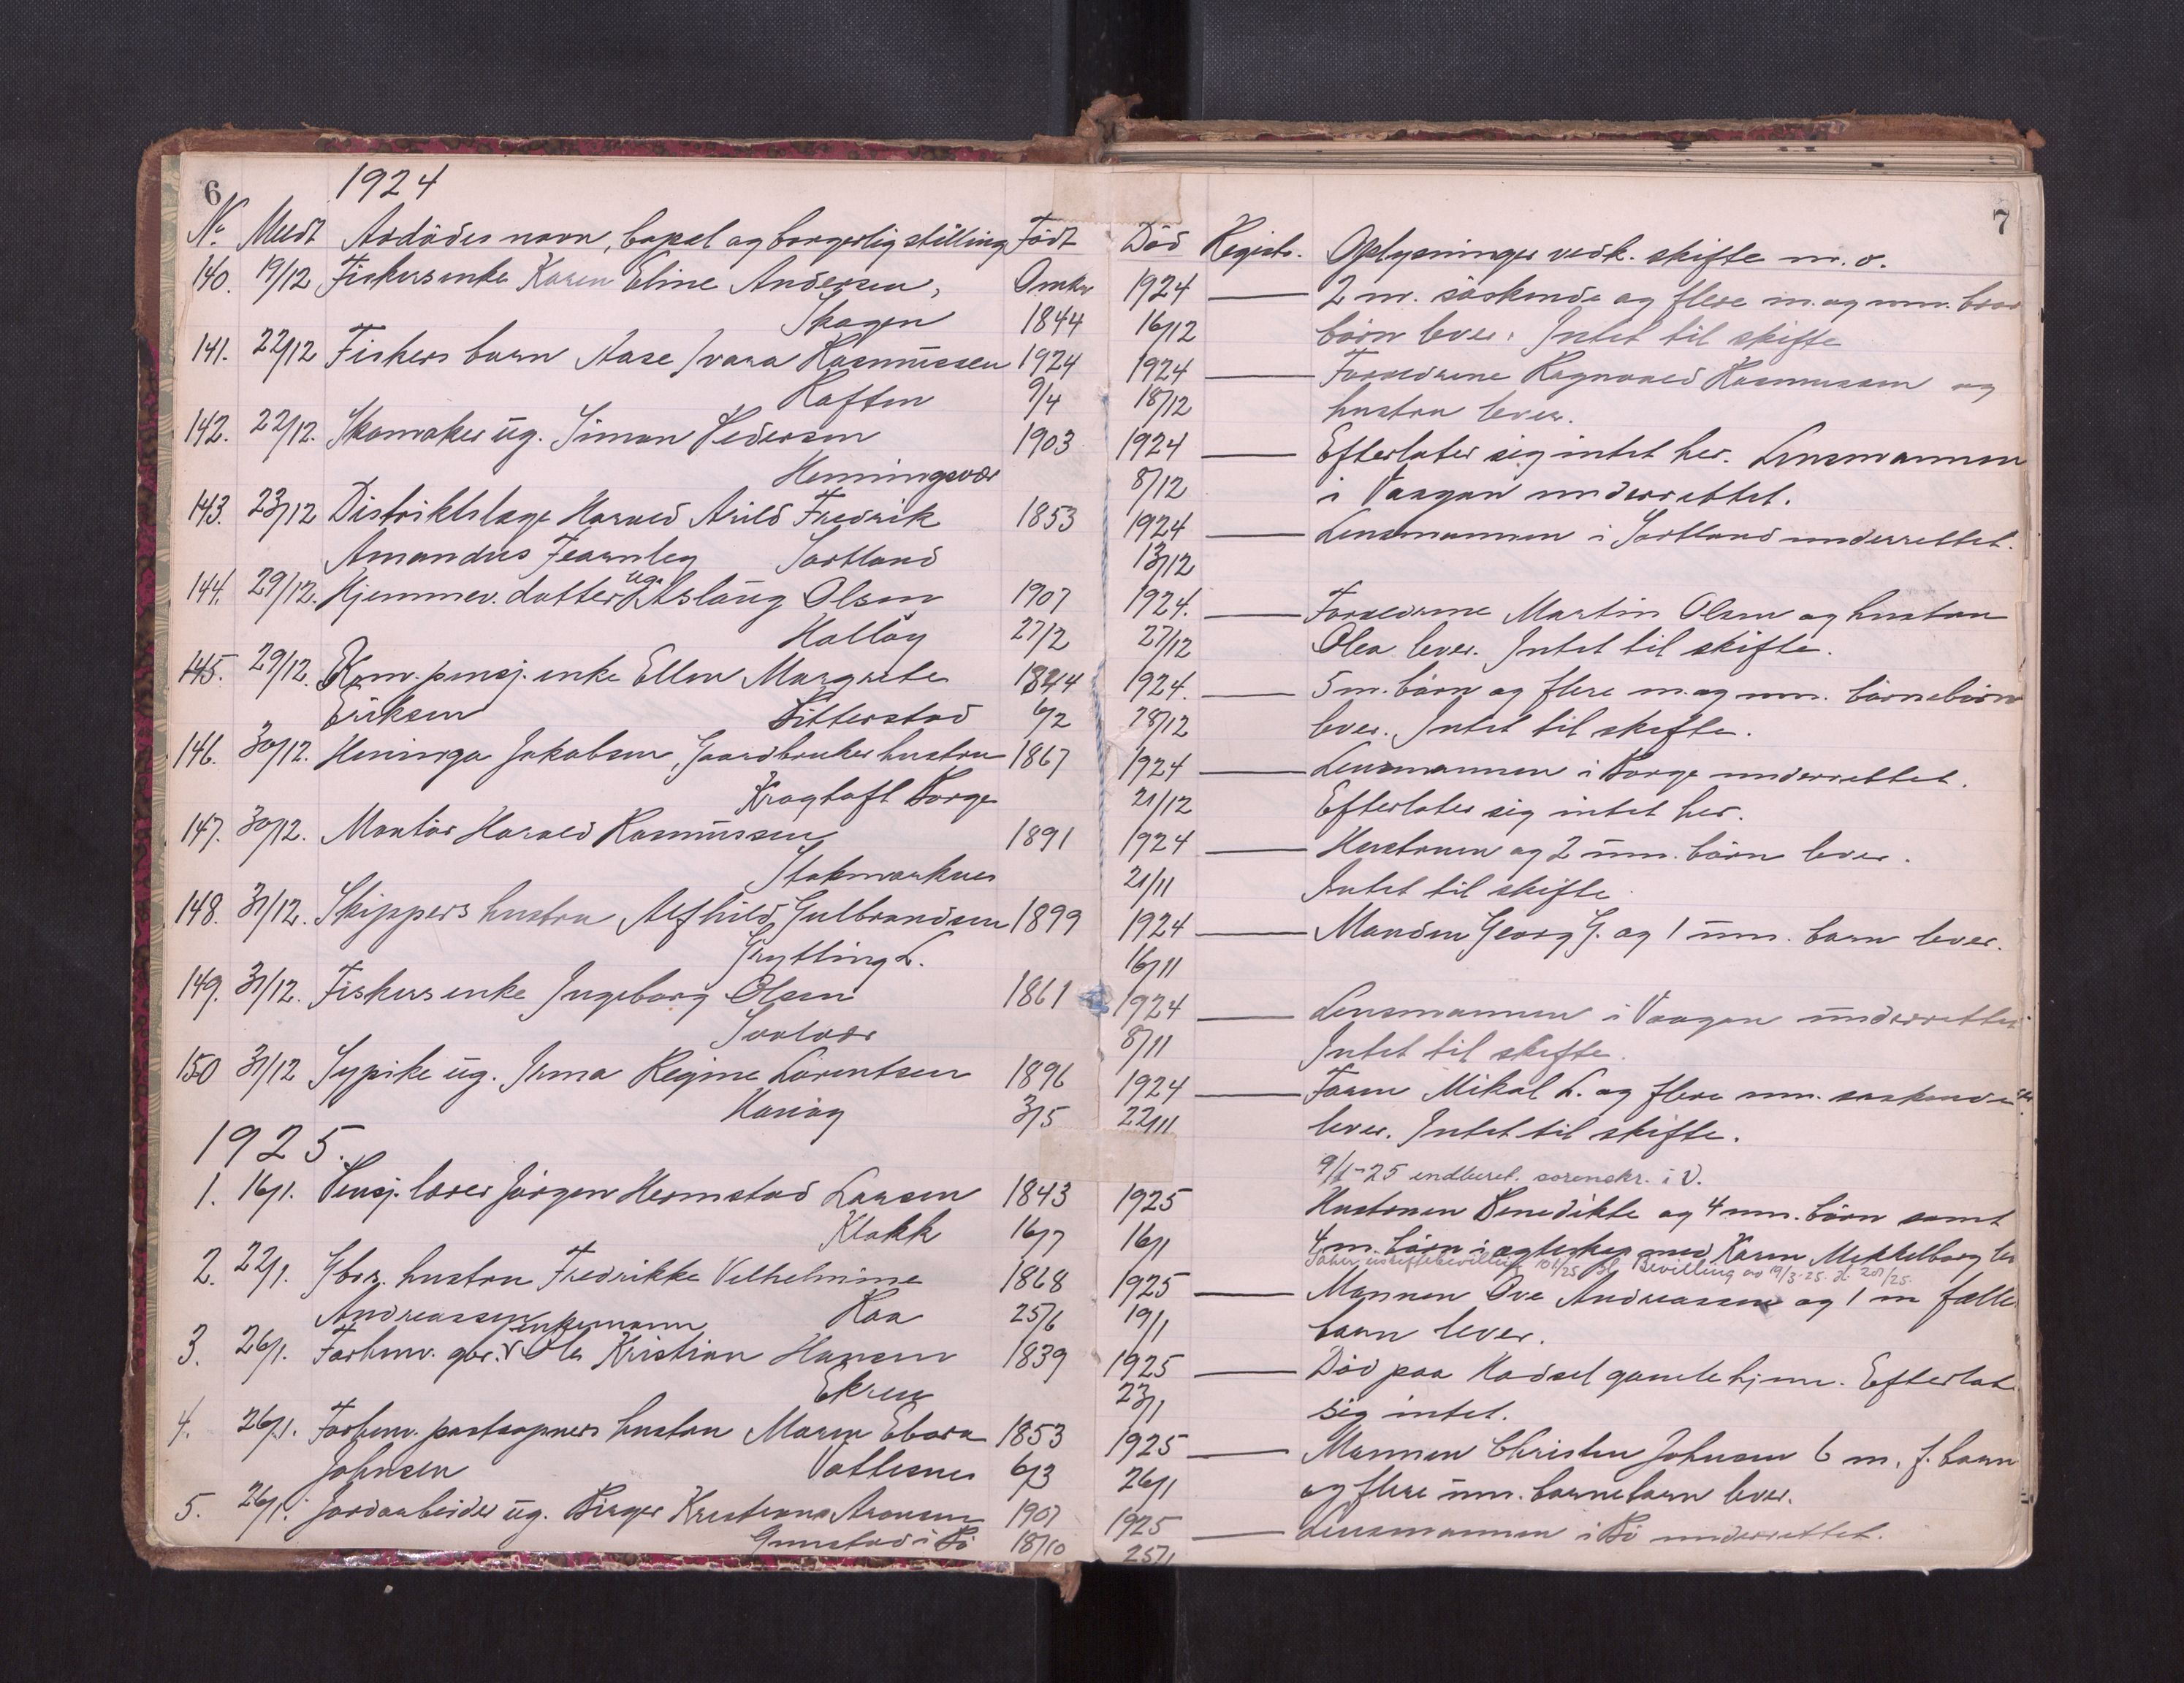 6
1924
No Meldt Avdödes navn, bopæl og borgerlig stilling Född
140. 19/12 Fiskersenke Karen Eline Andersen, Omkr
Skagen 1844
141. 22/12 Fiskers barn Aase Ivara Rasmussen 1924
Raften 9/4
142. 22/12. Skomaker ug. Simon Pedersen 1903
Henningsvær
143. 23/12 Distriktslæge Harald Arild Fredrik 1853
Amandus Fearnley Sortland
144. 29/12. Hjemmev. datter ug. Aslaug Olsen 1907
Halløy 27/2
145. 29/12. pensj. enke Ellen Margrete 1844
Eriksen Fitterstad 6/2
146. 30/12. Heninga Jakobsen, Gaardbruker hustru 1867
Kragtoft Borge
147. 30/12. Montör Harald Rasmussen 1891
Stokmarknes
148. 31/12. Skippers hustru Alfhild Gulbrandsen 1899
Grytting L.
149. 31/12. Fiskersenke Ingeborg Olsen 1861
Svolvær
150 31/12 Sypike ug. Irma Regine Lorentsen 1896
Hanöy 3/5
1925.
1. 16/1. Pensj. lærer Jörgen Hermstad Larsen 1843
Klakk 16/7
2. 22/1. Gbr. hustru Fredrikke Vilhelmine 1868
Andreassen Kaa 25/6
3. 26/1. Forhenv. gbr. enkemann Ole Kristian Hansen 1839
Ekren
4. 26/1. Forhenv. postaapners hustru Maren Ebara 1853
Johnsen Vottesnes 6/3
5. 26/1. Jordarbeider ug. Birger Kristians Aronsen 1907
Gunstad i Bö 18/10
7
Död Registr. Oplysninger vedk. skifte m. v.
1924 2 m. söskende og flere m. og um. bror
16/12 börn lever. Intet til skifte
1924 Forældrene Ragnvald Rasmussen og
18/12 hustru lever.
1924 Efterlater sig intet her. Lensmannen
8/12 i Vaagan underrettet.
1924 Lensmannen i Sortland underrettet.
13/12
1924. Forældrene Martin Olsen og hustru
27/12 Olea lever. Intet til skifte.
1924. 5 m. börn og flere m. og um. börnebörn
28/12 lever. Intet til skifte.
1924 Lensmannen i Borge underrettet.
21/12 Efterlater sig intet her.
1924 Hustruen og 2 um. börn lever.
21/11 Intet til skifte.
1924 Manden Georg G. og 1 um. barn lever.
16/11
1924 Lensmannen i Vaagan underrettet
8/11 Intet til skifte.
1924 Faren Mikal L. og flere um. söskende
22/11 lever. Intet til skifte.
9/1-25 indberet. sorenskr. i V.
1925 Hustruen Benedikte og 4 um. börn samt
16/1 4 m. börn i egteskap med Karen Mekkelborg lev
Söker uskiftebevilling 101/25 Bevilling av 19/3-25. 201/25.
1925 Mannen Ove Andreassen og 1 m fælles
19/1 barn lever.
1925 Död paa Hadsel gamlehjem. Efterlat
23/1 sig intet.
1925 Mannen Christen Johnsen 6 m. f. barn
26/1 og flere um. barnebarn lever.
1925 Lensmannen i Bö underrettet.
25/1